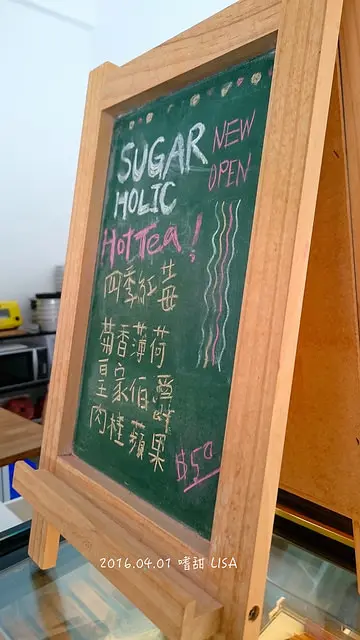 SUGAR
HOLIC
NEW
OPEN
Hot Tea!
四季紅莓
菊香薄荷
皇家伯爵
肉桂蘋果
$50
2016.04.01 嗜甜 LISA